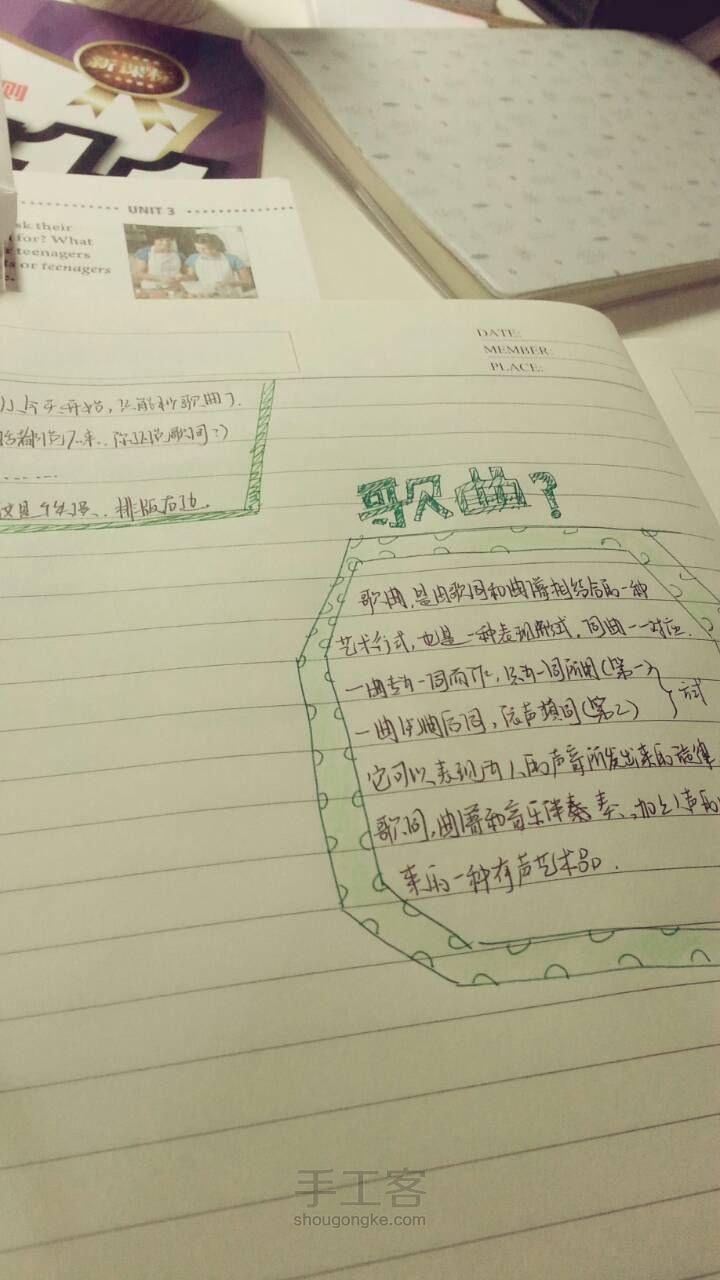 新课标
UNIT 3
sk their
for? What
teenagers
s or teenagers
DATE:
MEMBER:
PLACE:
今天开始,只能抄歌曲了.
歌词?)
......
排版右边.
歌曲?
歌曲,是由歌词和曲谱相结合的一种
艺术形式,也是一种表现形式.词曲一一对应.
一曲专为一词而作,只为一词所用(第一)
方式
一曲依曲后词,依声填词(第二)
它可以表现由人的声音所发出来的旋律
歌词,曲谱和音乐伴奏,加上声的
来的一种有声艺术品.
手工客
shougongke.com